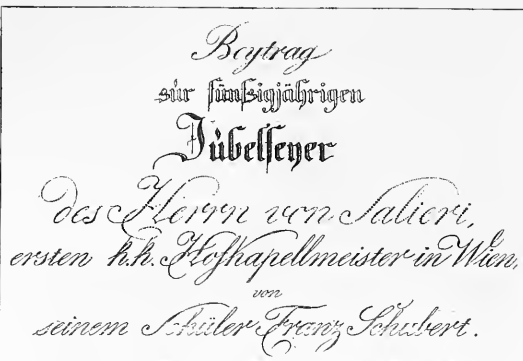 Beytrag
zur fünfzigjährigen
Jubelfeyer
des Herrn von Salieri,
ersten k.k. Hofkapellmeister in Wien,
von
seinem Schüler Franz Schubert.